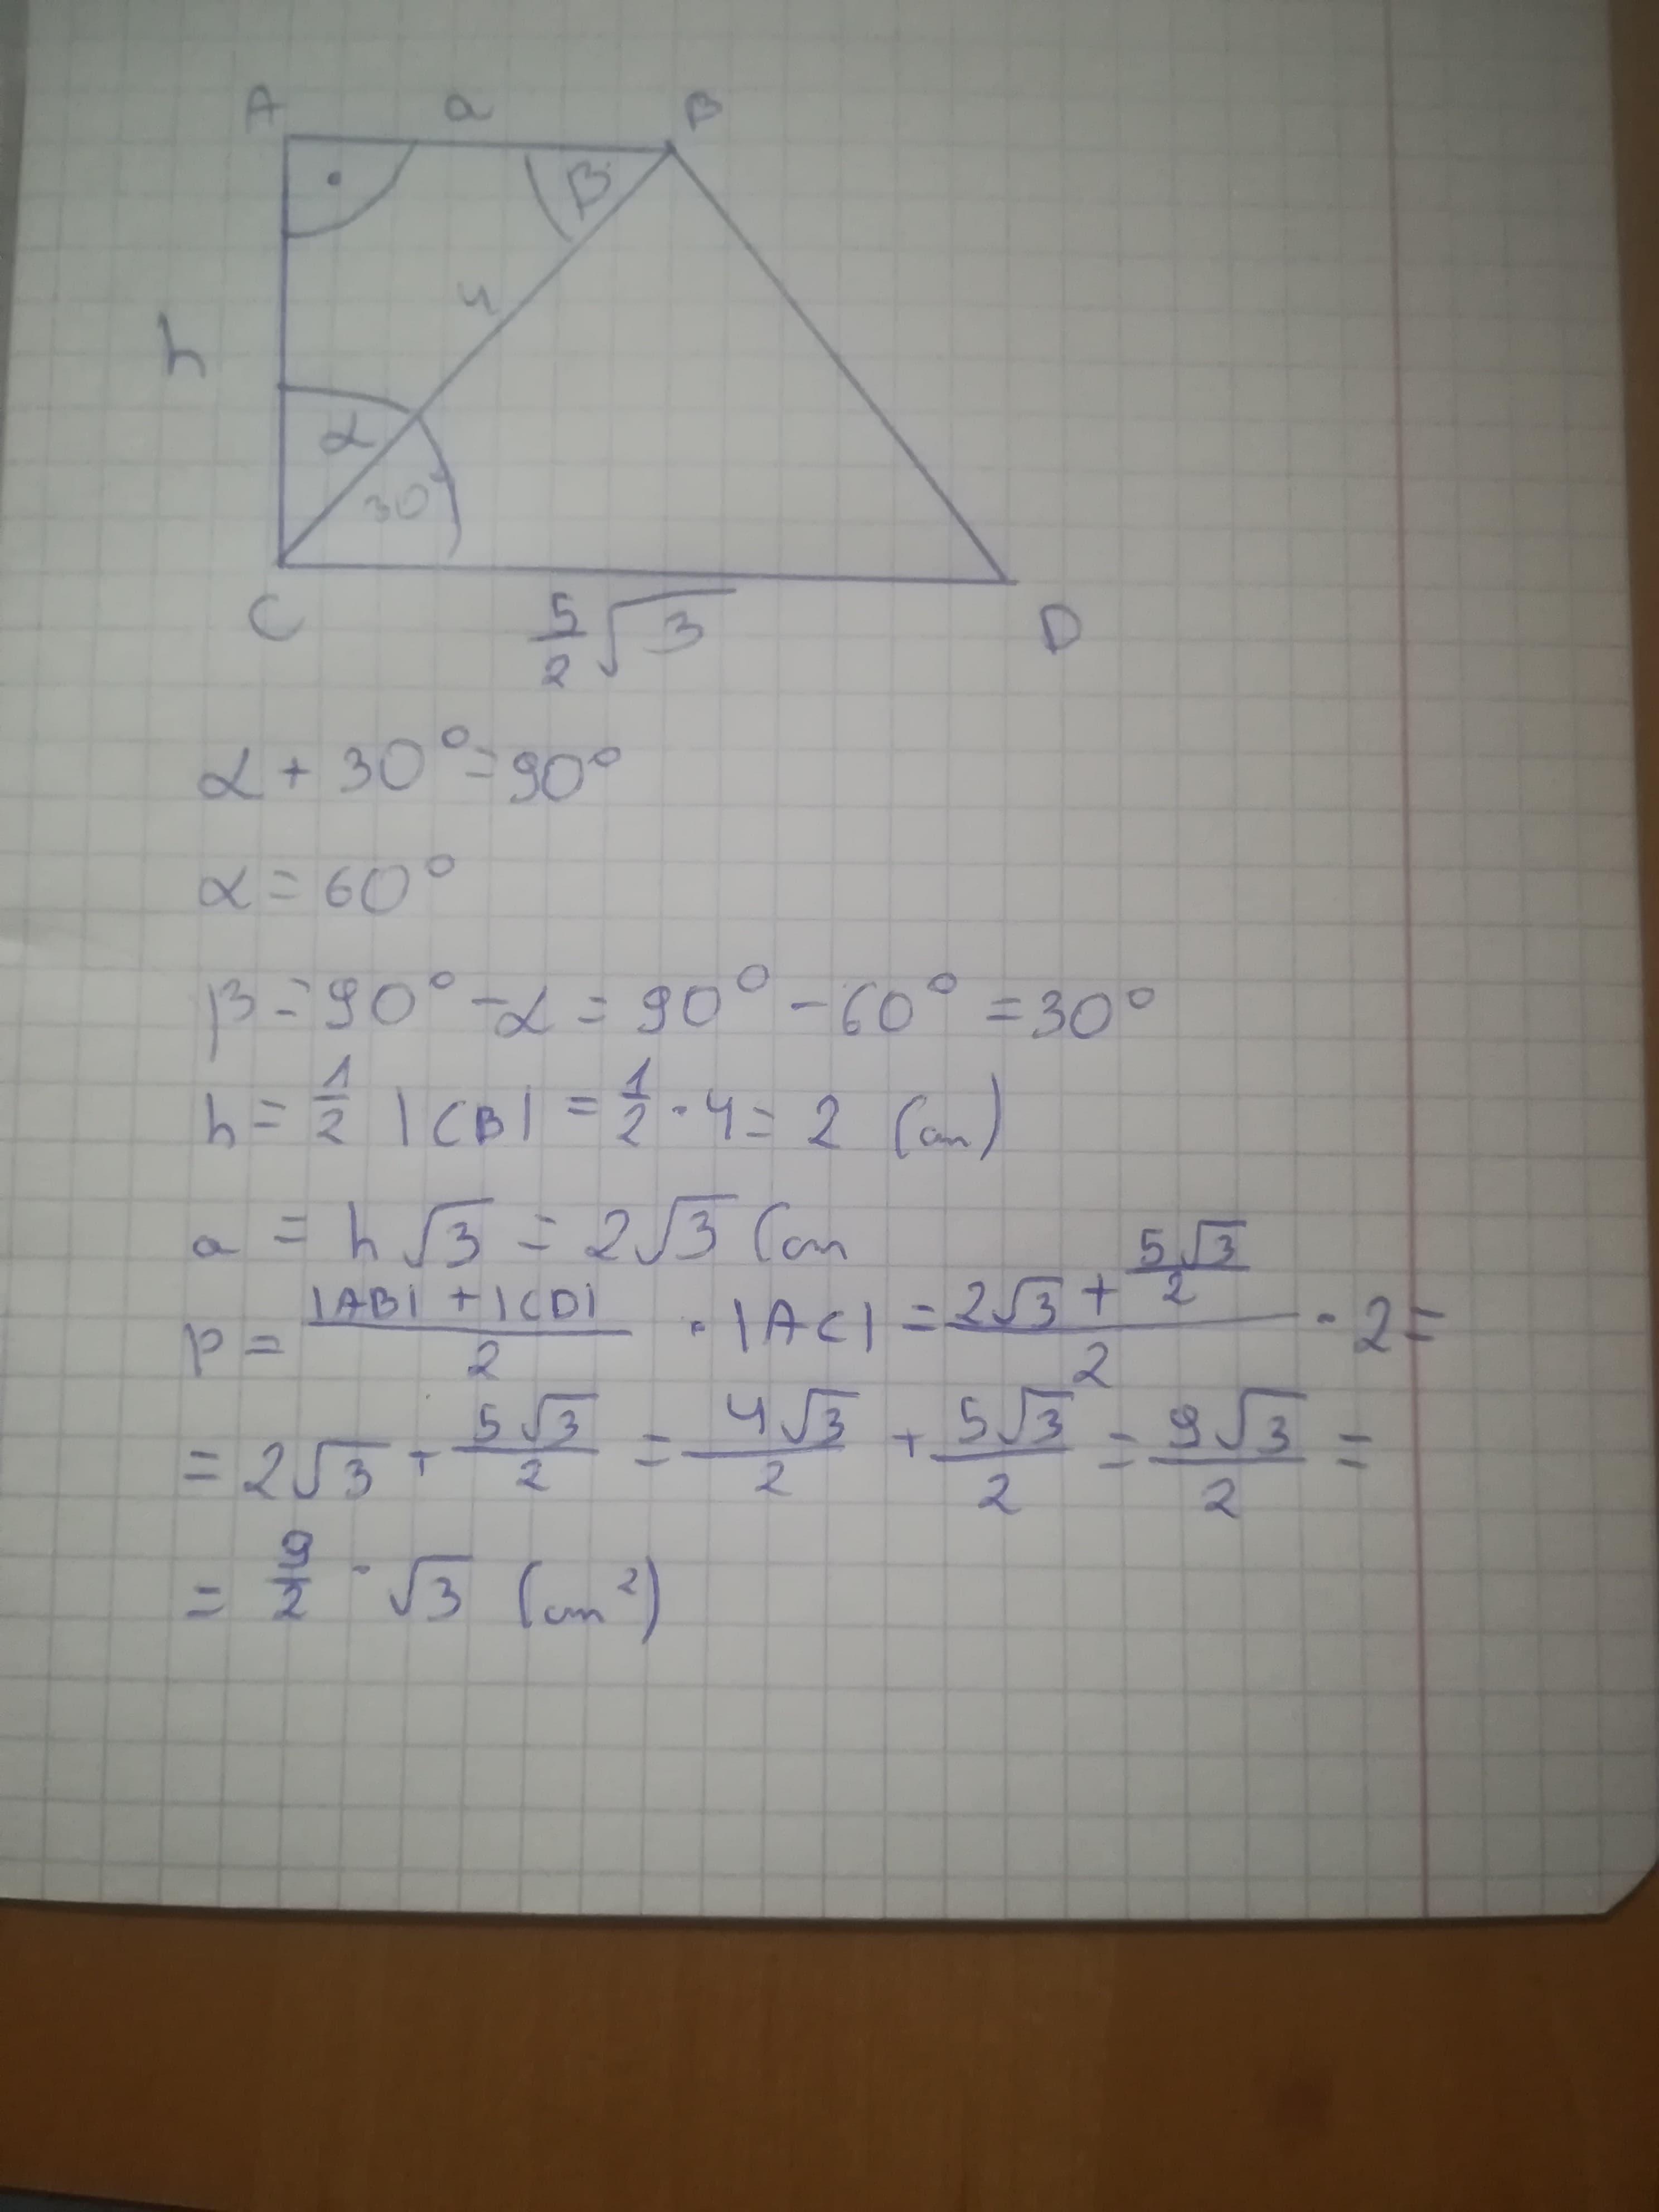 A a B
β
4
h
α
30°
C D
5/2 √3
α + 30° = 90°
α = 60°
β = 90° - α = 90° - 60° = 30°
h = 1/2 |CB| = 1/2 · 4 = 2 (cm)
a = h√3 = 2√3 (cm
P = (|AB| + |CD|)/2 · |AC| = (2√3 + 5√3/2)/2 · 2 =
= 2√3 + 5√3/2 = 4√3/2 + 5√3/2 = 9√3/2 =
= 9/2 · √3 (cm²)